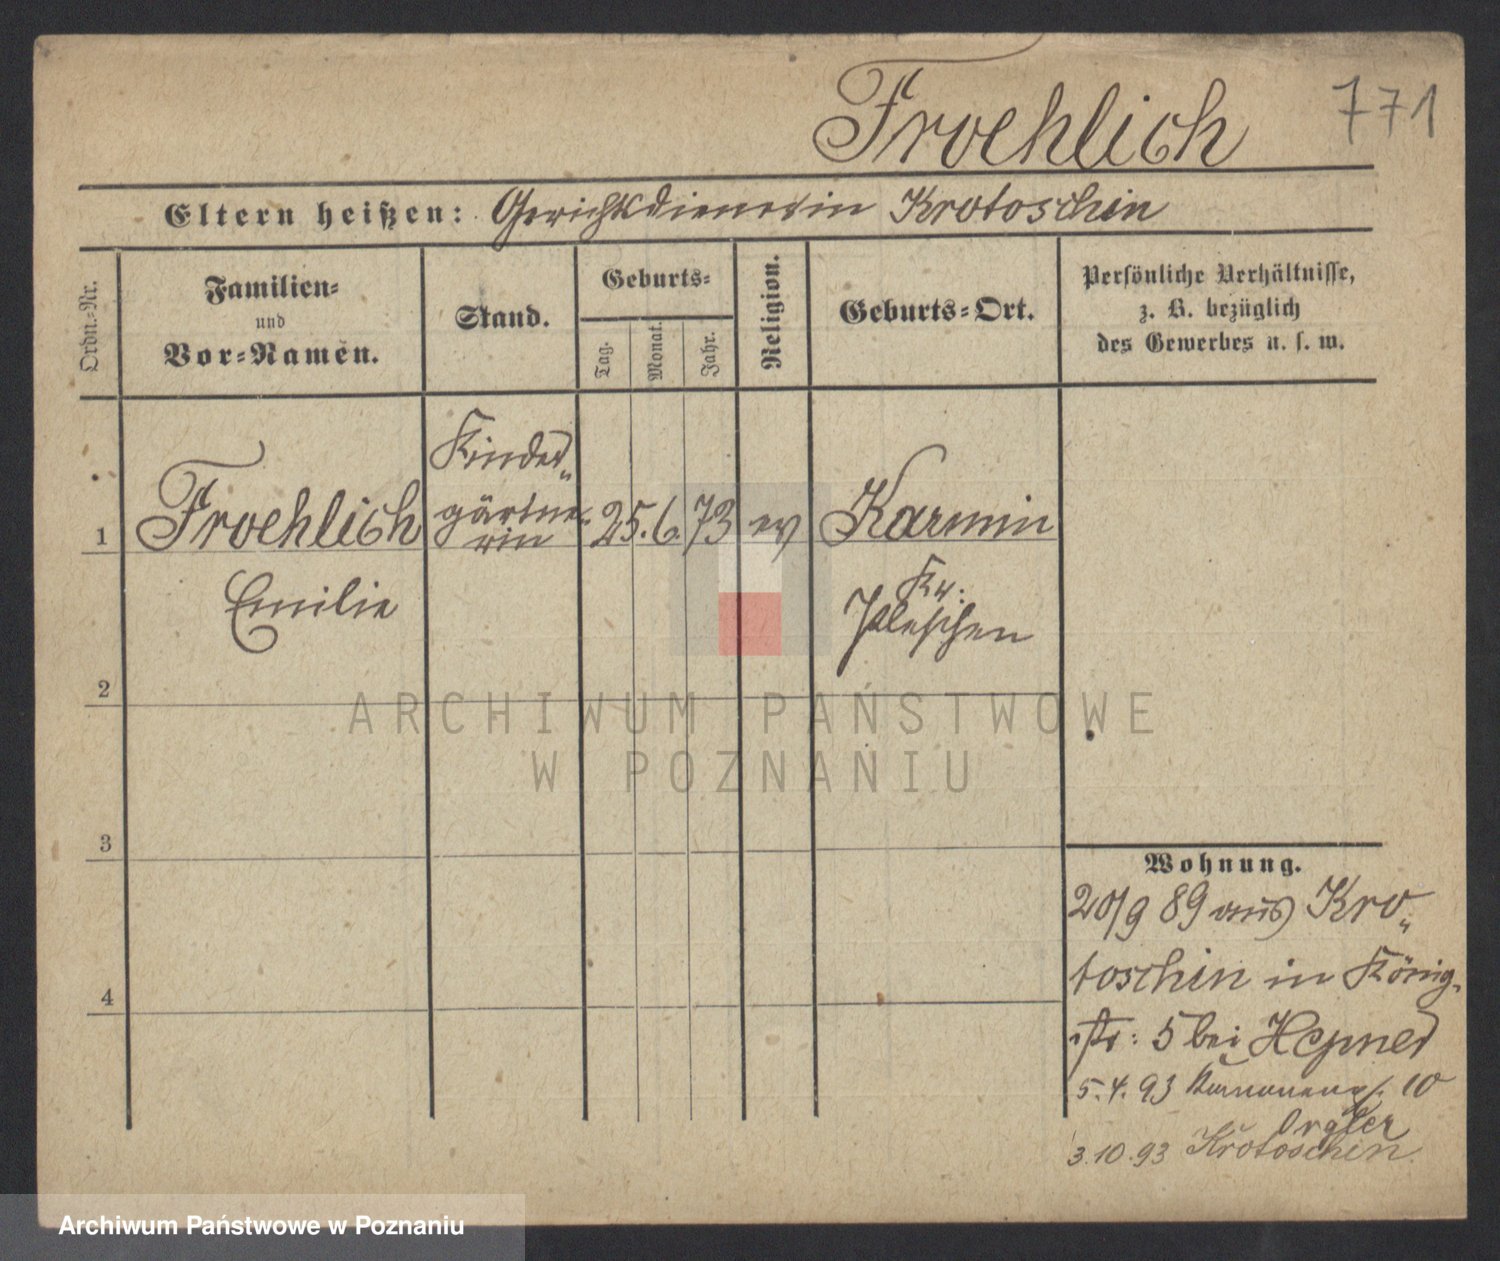 Froehlich
771
Eltern heißen: Gerichtsdiener in Krotoschin
Ordn.-Nr.
Familien-
und
Vor-Namen.
Stand.
Geburts-
Tag.
Monat.
Jahr.
Religion.
Geburts-Ort.
Persönliche Verhältnisse,
z. B. bezüglich
des Gewerbes u. s. w.
1
Froehlich
Emilie
Kinder-
gärtne-
rin
25. 6. 73
ev
Karmin
Kr:
Pleschen
2
3
4
Wohnung.
20/9 89 aus Kro-
toschin in König-
str: 5 bei Hepner
5.4.93 10
Orgler
3.10.93 Krotoschin
ARCHIWUM PAŃSTWOWE
W POZNANIU
Archiwum Państwowe w Poznaniu